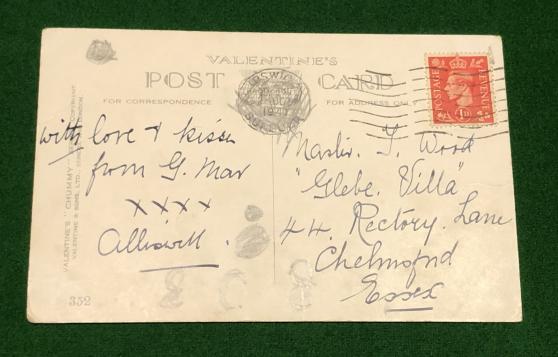 VALENTINE'S
POST CARD
FOR CORRESPONDENCE
FOR ADDRESS ONLY
POSTAGE REVENUE
1D
with love & kisses
from G. Mar
XXXX
Master. J. Wood
"Glebe. Villa"
44. Rectory. Lane
Chelmsford
Essex
VALENTINE'S "CHUMMY"
VALENTINE & SONS, LTD.
352